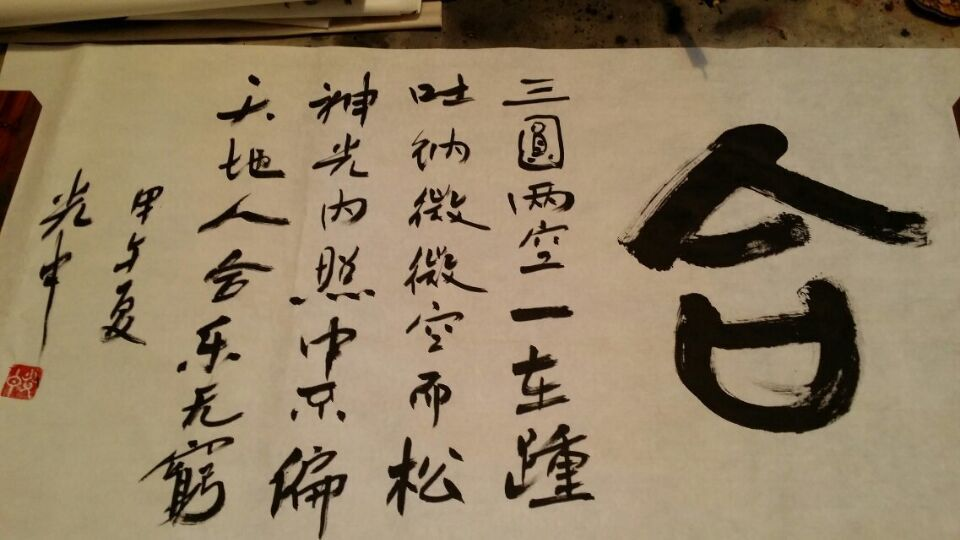 合
三圓两空一在踵
吐纳微微空而松
神光内照中不偏
天地人合乐无窮
甲午夏
光中